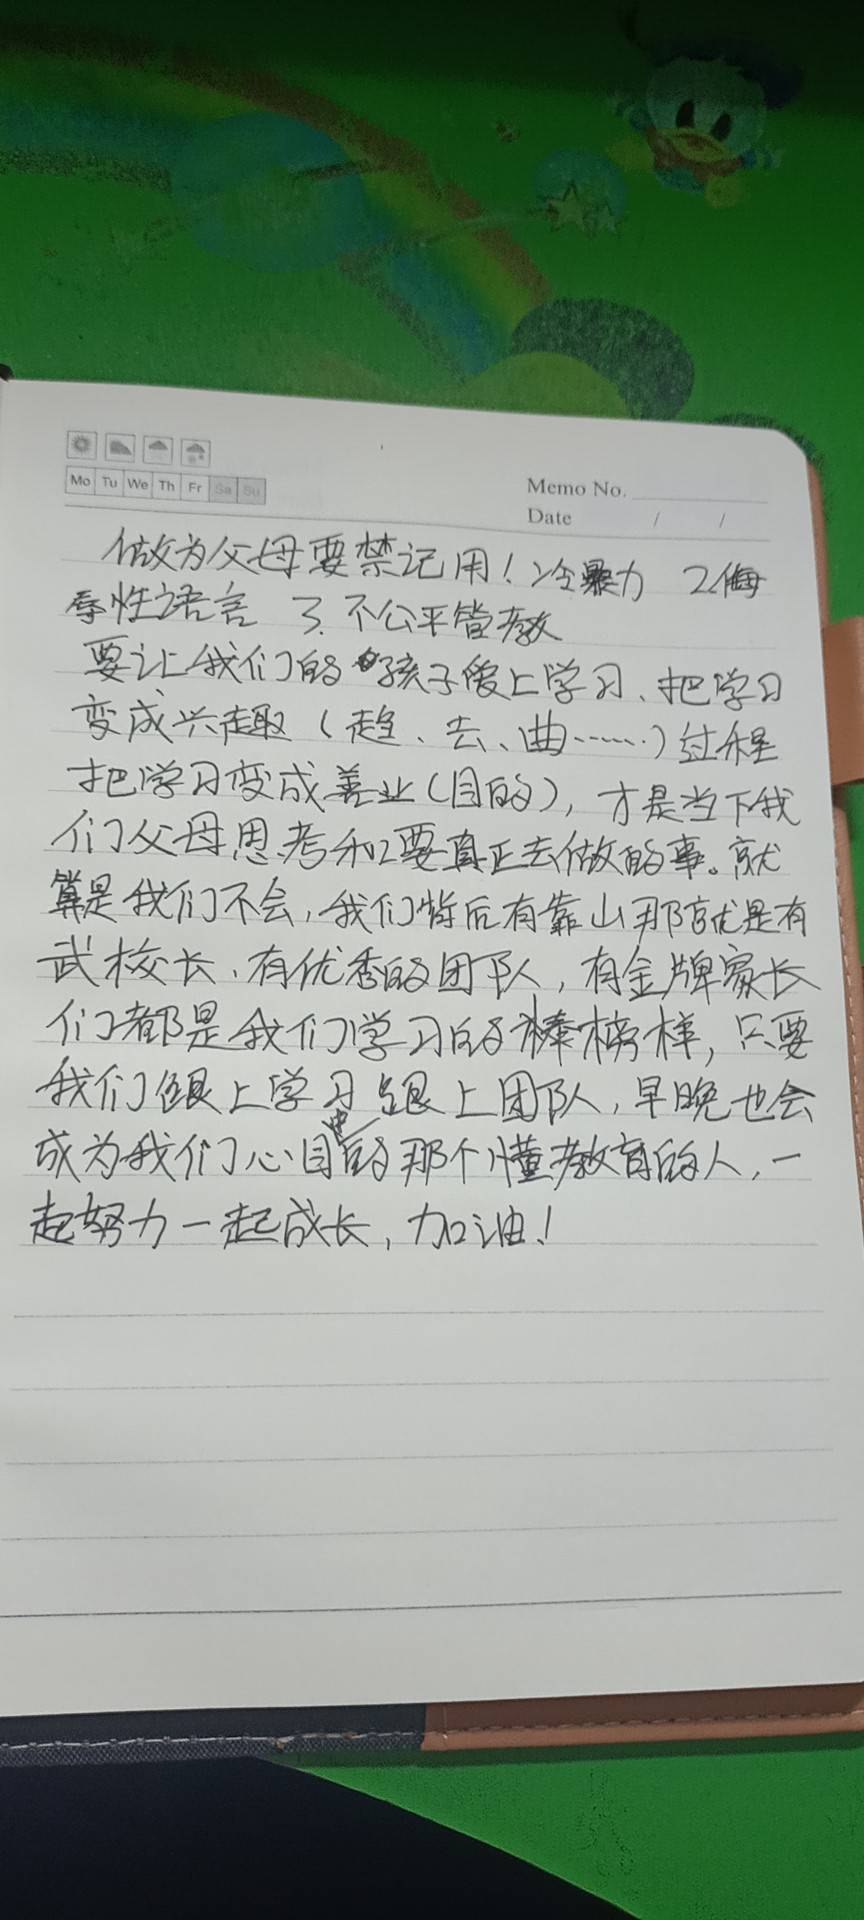 Mo Tu We Th Fr Sa Su
Memo No.
Date / /
做为父母要禁记用！冷暴力 2侮
辱性语言 3.不公平管教
要让我们的孩子爱上学习、把学习
变成兴趣（趋、去、曲……）过程
把学习变成善业(目的)，才是当下我
们父母思考和要真正去做的事。就
算是我们不会，我们背后有靠山那就是有
武校长、有优秀的团队，有金牌家长
们都是我们学习的榜样，只要
我们跟上学习跟上团队，早晚也会
成为我们心目中的那个懂教育的人，一
起努力一起成长，加油！